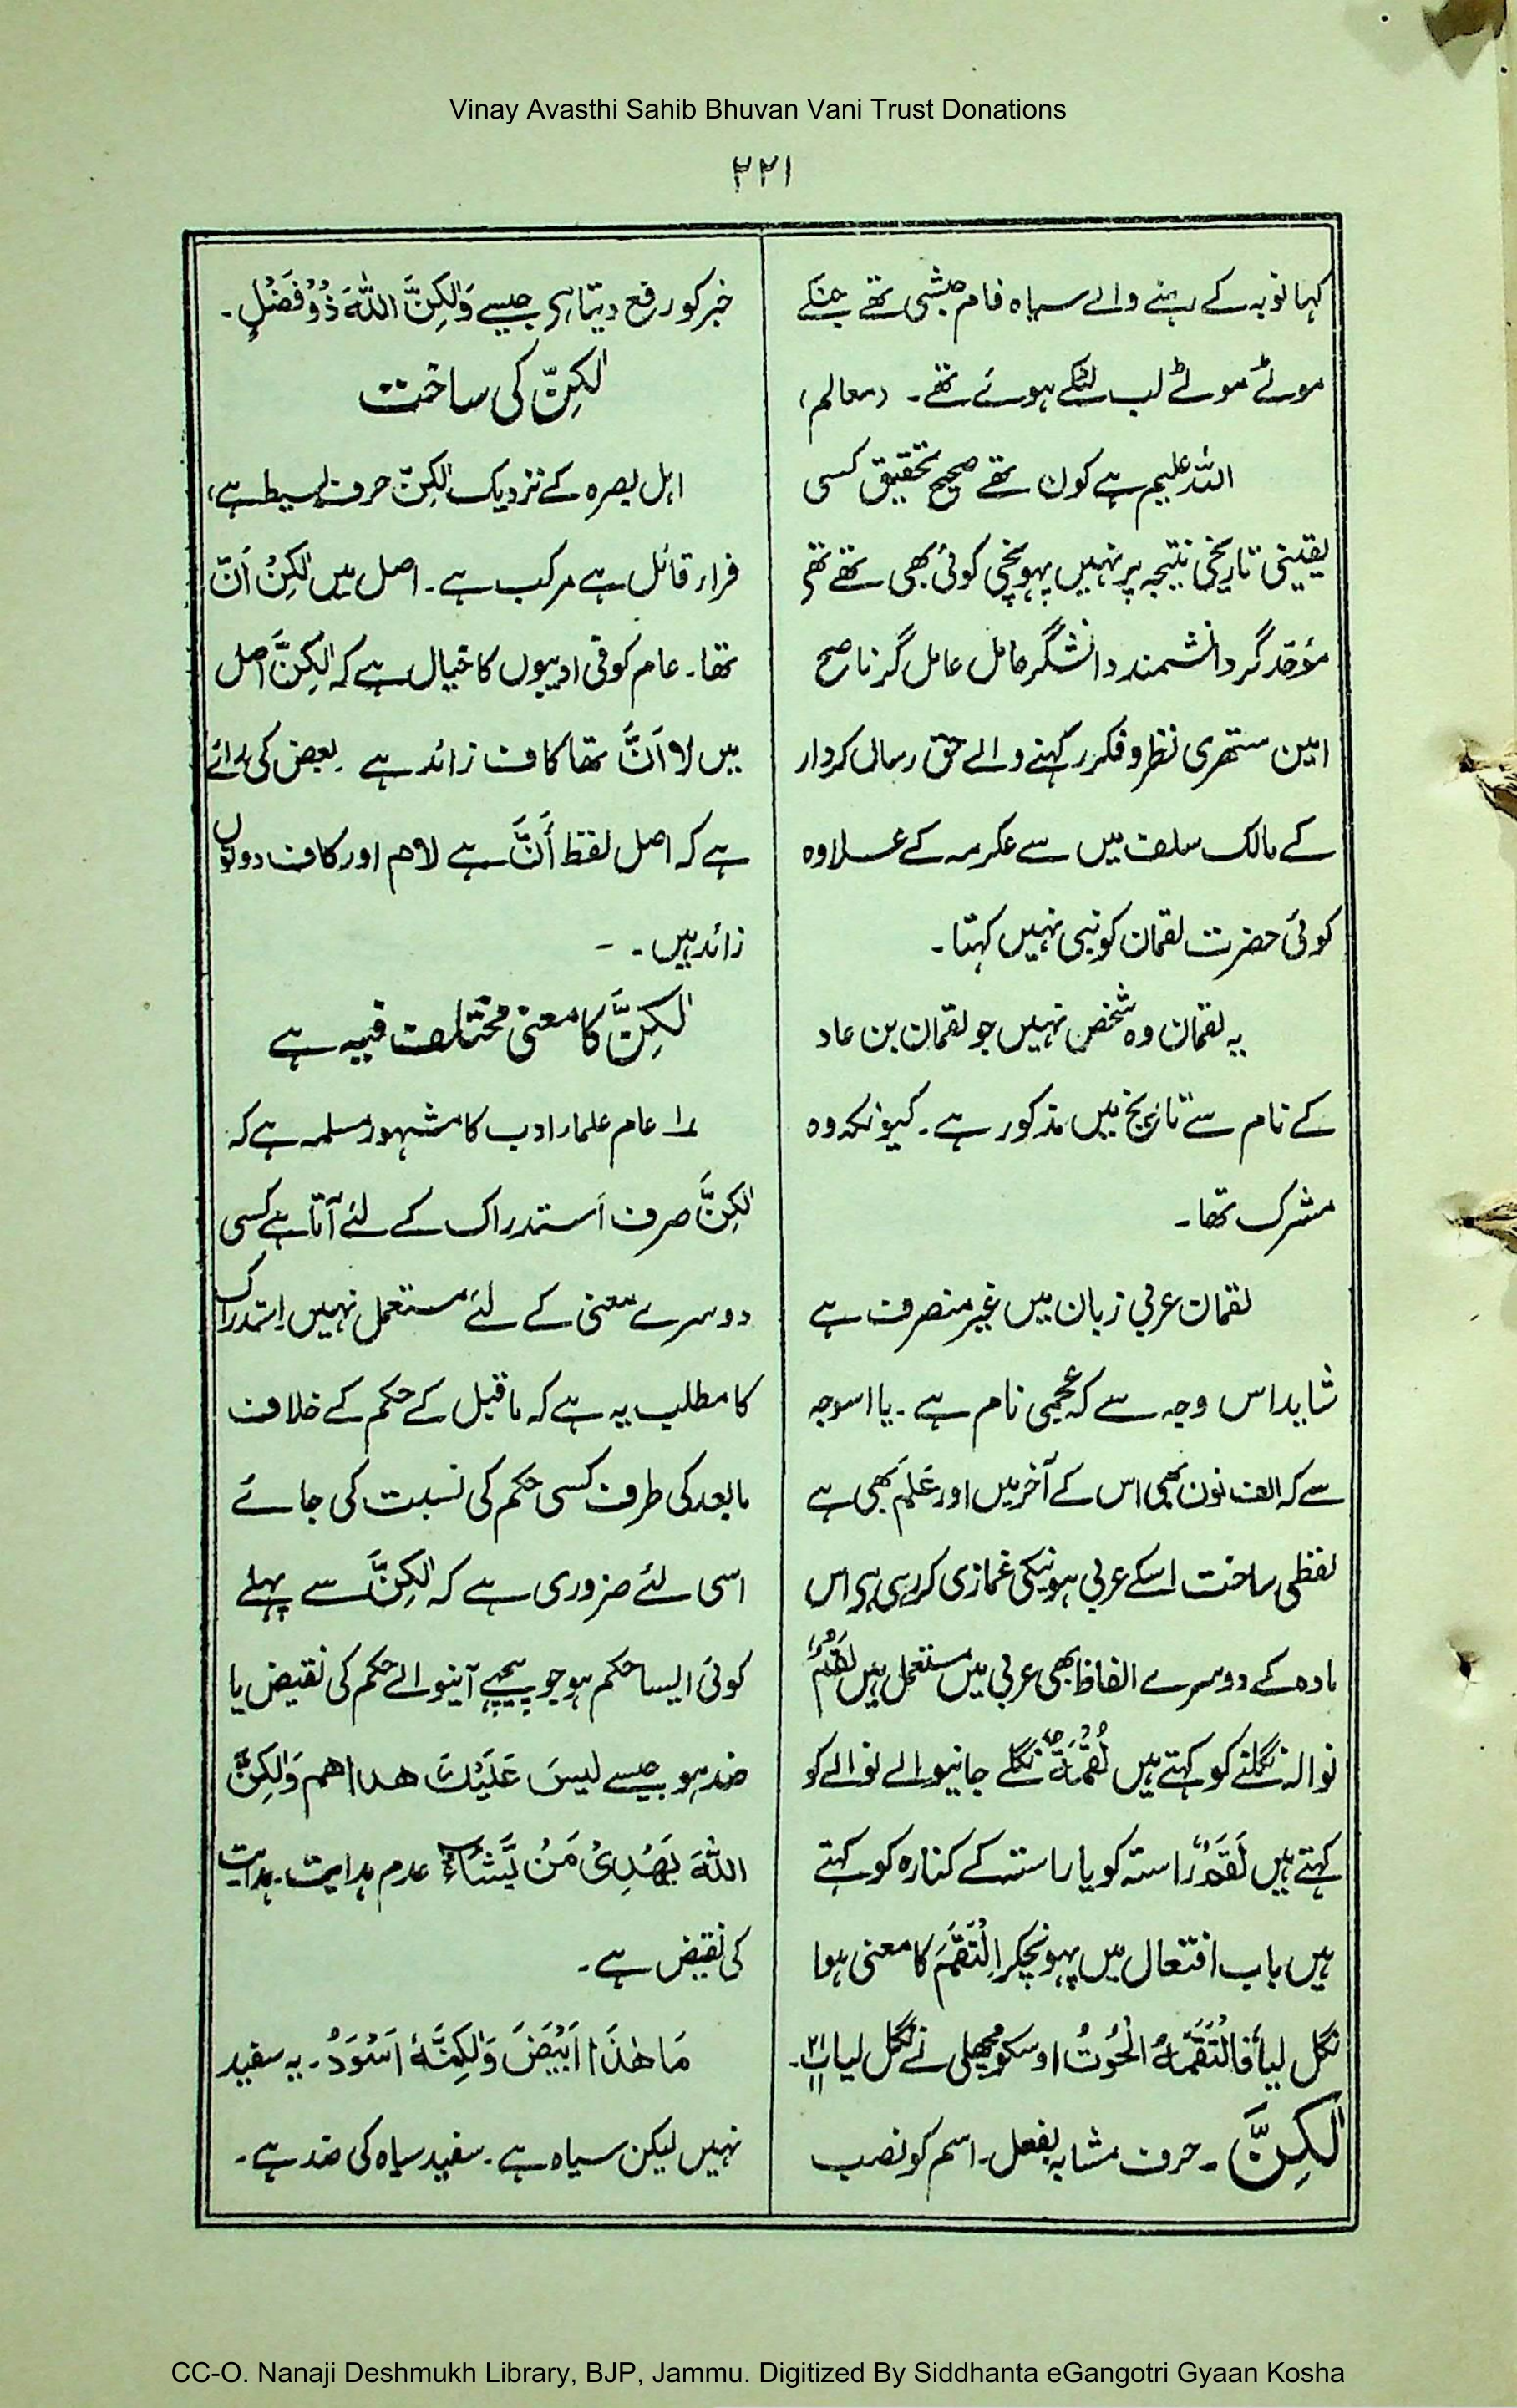 Vinay Avasthi Sahib Bhuvan Vani Trust Donations
۲۲۱
کہا نوبہ کے رہنے والے سیاہ فام حبشی تھے جنکے
موٹے موٹے لب لٹکے ہوئے تھے۔ (معالم)
اللہ علیم ہے کون تھے صحیح تحقیق کسی
یقینی تاریخی نتیجہ پر نہیں پہونچی کوئی بھی تھے تھے
مؤحد گر دانشمند دانشگر حامل عامل گر ناصح
امین ستھری نظر و فکر رکھنے والے حق رساں کردار
کے مالک سلف میں سے عکرمہ کے علاوہ
کوئی حضرت لقمان کو نبی نہیں کہتا۔
یہ لقمان وہ شخص نہیں جو لقمان بن عاد
کے نام سے تاریخ میں مذکور ہے۔ کیونکہ وہ
مشرک تھا۔
لقمان عربی زبان میں غیر منصرف ہے
شاید اس وجہ سے کہ عجمی نام ہے۔ یا اسوجہ
سے کہ الف نون بھی اس کے آخر میں اور عَلَم بھی ہے
لفظی ساخت اسکے عربی ہونیکی غمازی کر رہی ہے اس
مادہ کے دوسرے الفاظ بھی عربی میں مستعمل ہیں لَقْمٌ
نوالہ نگلنے کو کہتے ہیں لُقْمَةٌ نگلے جانیوالے نوالے کو
کہتے ہیں لَقَمٌ راستہ کو یا راستہ کے کنارہ کو کہتے
ہیں باب افتعال میں پہونچکر اِلْتَقَمَ کا معنی ہوا
نگل لیا فَالْتَقَمَهُ الْحُوْتُ اوسکو مچھلی نے نگل لیا
لٰكِنَّ ۔ حرف مشابہ بفعل۔ اسم کو نصب
خبر کو رفع دیتا ہے جیسے وَلٰكِنَّ اللّٰهَ ذُوْ فَضْلٍ۔
لٰكِنَّ کی ساخت
اہل بصرہ کے نزدیک لٰكِنَّ حرف بسیط ہے،
فراء قائل ہے مرکب ہے۔ اصل میں لٰكِنْ اَنَّ
تھا۔ عام کوفی ادیبوں کا خیال ہے کہ لٰكِنَّ اصل
میں لا اَنَّ تھا کاف زائد ہے۔ بعض کی رائے
ہے کہ اصل لفظ أَنَّ ہے لام اور کاف دونوں
زائد ہیں۔ -
لٰكِنَّ کا معنی مختلف فیہ ہے
۱؎ عام علماء ادب کا مشہور مسلمہ ہے کہ
لٰكِنَّ صرف استدراک کے لئے آتا ہے کسی
دوسرے معنی کے لئے مستعمل نہیں استدراک
کا مطلب یہ ہے کہ ماقبل کے حکم کے خلاف
مابعد کی طرف کسی حکم کی نسبت کی جائے
اسی لئے ضروری ہے کہ لٰكِنَّ سے پہلے
کوئی ایسا حکم ہو جو پیچھے آنیوالے حکم کی نقیض یا
ضد ہو جیسے لیسَ عَلَیْكَ هداهم وَلٰكِنَّ
اللّٰهَ یَهْدِیْ مَنْ یَّشَاءُ عدم ہدایت۔ ہدایت
کی نقیض ہے۔
مَا هٰذَا اَبْیَضَ وَلٰكِنَّهٗ اَسْوَدُ۔ یہ سفید
نہیں لیکن سیاہ ہے۔ سفید سیاہ کی ضد ہے۔
CC-O. Nanaji Deshmukh Library, BJP, Jammu. Digitized By Siddhanta eGangotri Gyaan Kosha